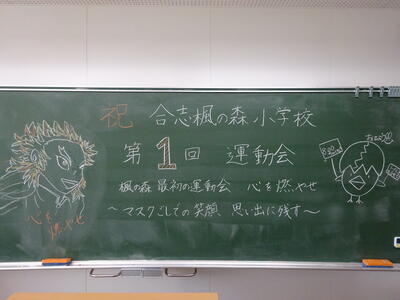 祝 合志楓の森小学校
第1回 運動会
楓の森 最初の運動会 心を燃やせ
〜マスクごしての笑顔 思い出に残す〜
心を
燃やせ